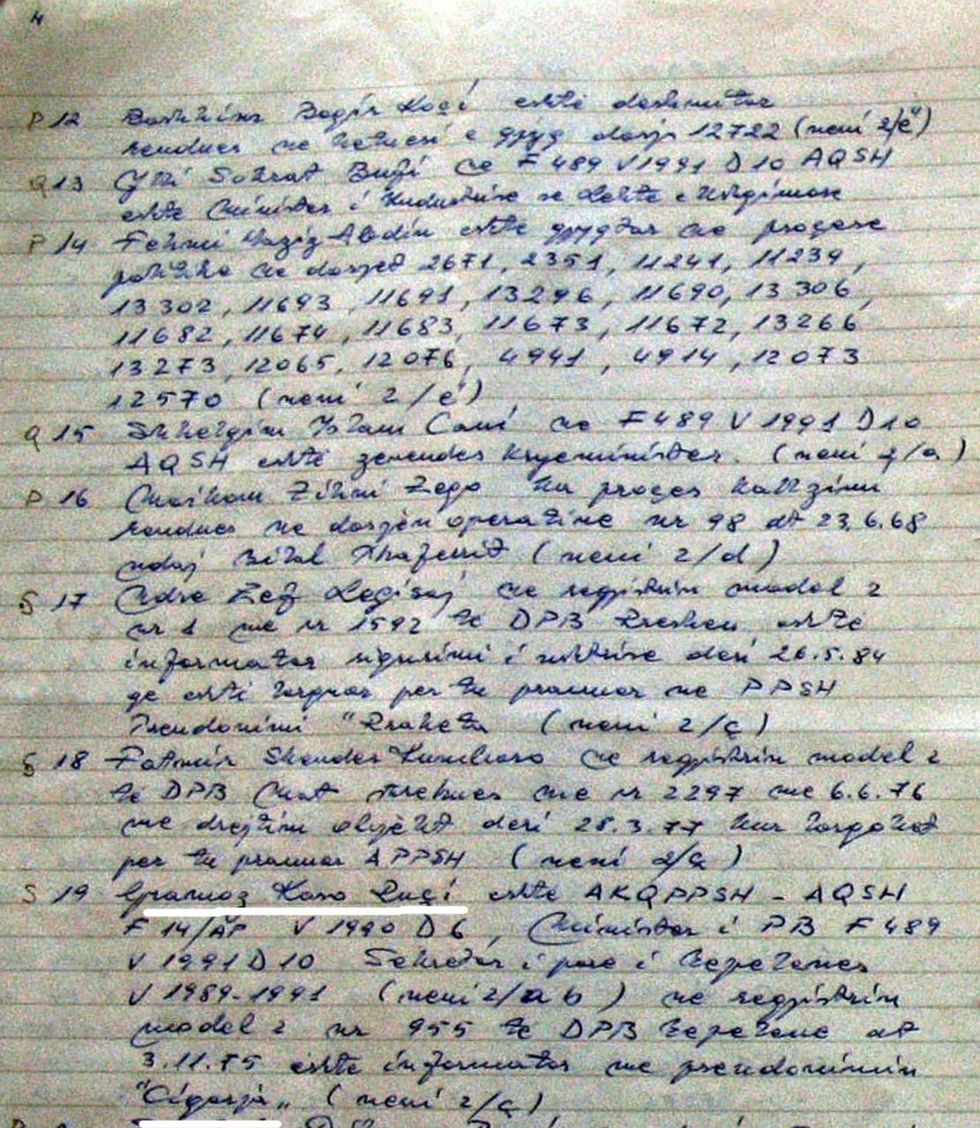 4
P 12 Bashkim Beqir Koçi eshte deshmitar
rendues ne hetuesi e gjyq dosje 12722 (neni 2/ë)
Q 13 Ylli Sokrat Bufi ne F 489 V 1991 D 10 AQSH
eshte Minister i Industrise se lehte e Ushqimore
P 14 Fehmi Abdiu eshte gjyqtar ne proçese
politike ne dosjet 2671, 2351, 11241, 11239,
13302, 11693, 11691, 13296, 11690, 13306,
11682, 11674, 11683, 11673, 11672, 13266
13273, 12065, 12076, 4941, 4914, 12073
12570 (neni 2/ë)
Q 15 Shkelqim Cani ne F 489 V 1991 D 10
AQSH eshte zevendes Kryeminister. (neni 2/a)
P 16 Maksim Zihni Zeqo ka proçes kallzimi
rendues ne dosjen operative nr 98 dt 23.6.68
ndaj Bilal Xhaferrit (neni 2/d)
S 17 Ndre Zef Legisaj ne regjistrin model 2
nr 1 me nr 1592 te DPB Kreshen eshte
informator sigurimi i deri 26.5.84
qe eshte larguar per tu pranuar ne PPSH
Pseudonimi "Raketa (neni 2/ç)
S 18 Fatmir Skender Kumbaro ne regjistrin model 2
te DPB Mat me nr 2297 me 6.6.76
me drejtim objekt deri 28.3.77 kur largohet
per tu pranuar A PPSH (neni 2/ç)
S 19 Gramoz Ruçi eshte AKQPPSH - AQSH
F 14/AP V 1990 D 6, Minister i PB F 489
V 1991 D 10 Sekretar i pare i Tepelenes
V 1989-1991 (neni 2/a b) ne regjistrin
model 2 nr 955 te DPB Tepelene dt
3.11.75 eshte informator me pseudonimin
"Cigarja" (neni 2/ç)